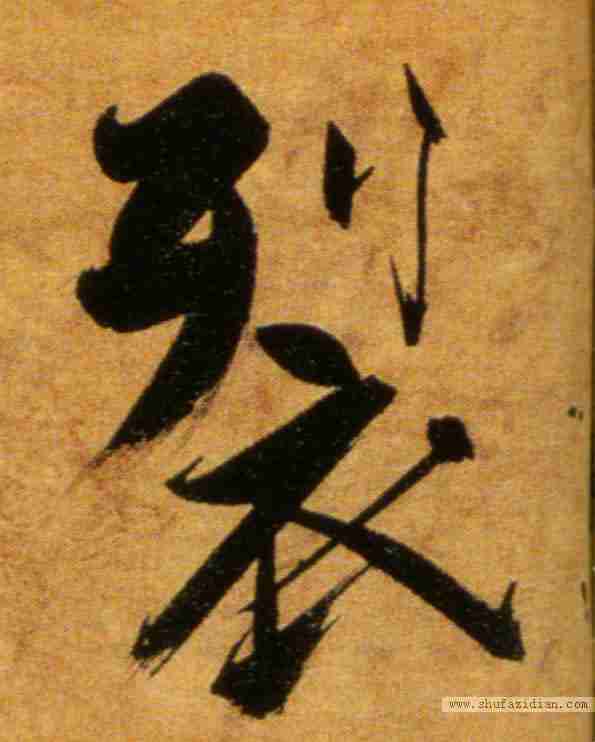 裂
www.shufazidian.com